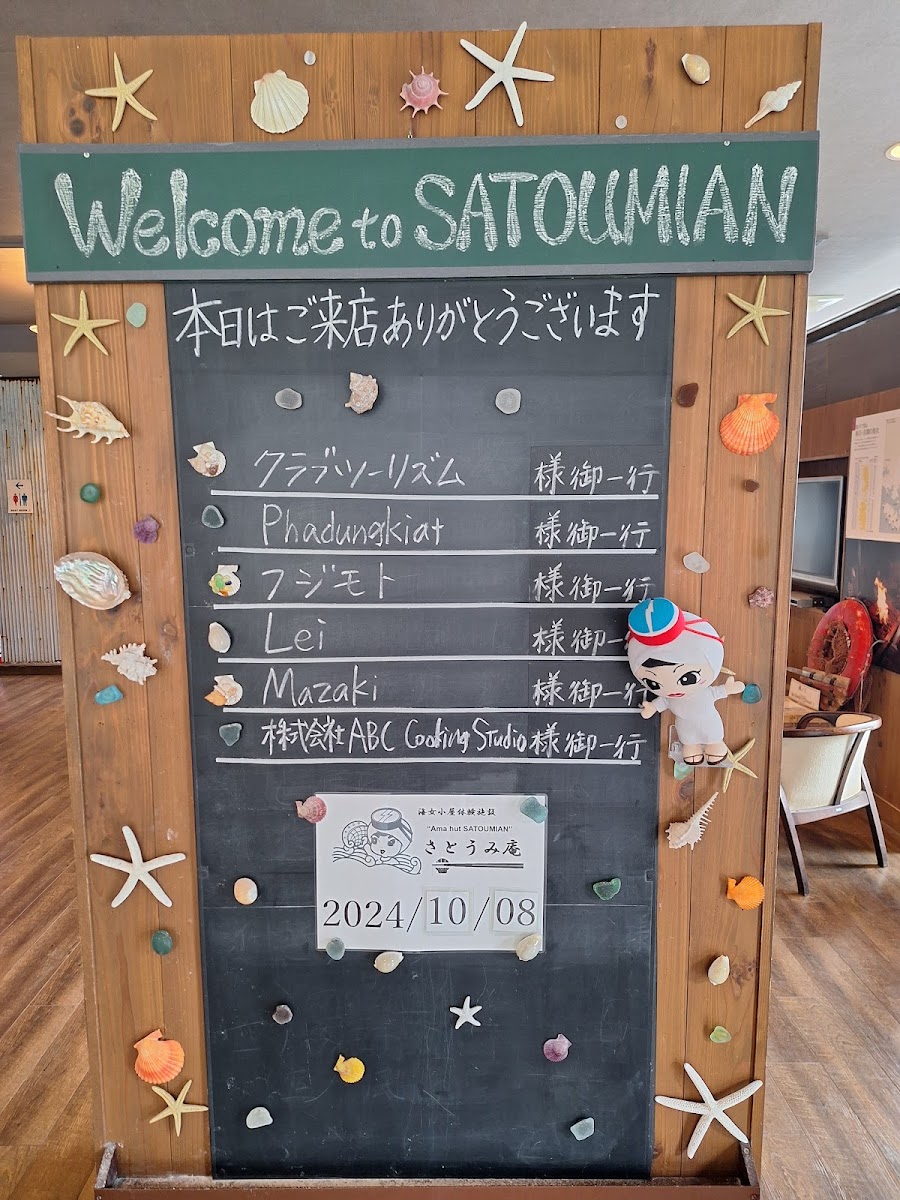 Welcome to SATOUMIAN
本日はご来店ありがとうございます
クラブツーリズム 様御一行
Phadungkiat 様御一行
フジモト 様御一行
Lei 様御一行
Mazaki 様御一行
株式会社ABC Cooking Studio 様御一行
海女小屋体験施設
"Ama hut SATOUMIAN"
さとうみ庵
2024/10/08